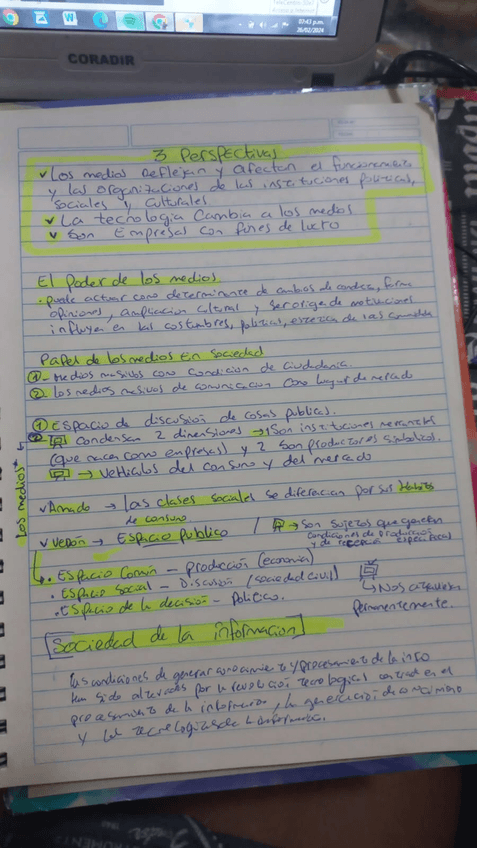 07:43 p.m.
26/02/2024
CORADIR
3 Perspectivas
Los medios Reflejan y afectan el funcionamiento
y las organizaciones de las instituciones politicas,
sociales y culturales
La tecnologia Cambia a los medios
Son Empresas con fines de lucro
El Poder de los medios
puede actuar como determinante de cambios de conducta, forma
opiniones, ampliacion cultural y ser origen de motivaciones
influyen en las costumbres, politicas,
Papel de los medios En Sociedad
1- Medios masivos como condicion de ciudadania.
2. Los medios masivos de comunicacion como lugar de mercado
1 Espacio de discusión de cosas publicas.
2 condensan 2 dimensiones → 1 son instituciones mercantiles
(que nacen como empresas) y 2 son productores simbolicos.
→ Vehiculos del consumo y del mercado
Los medios
Amado → Las clases sociales se diferencian por sus Habitos
de consumo
Verón → Espacio publico / → Son sujetos que generan
condiciones de produccion
y de recepcion
. Espacio Común - Producción (economia)
. Espacio social - Discusión (sociedad civil)
. Espacio de la decisión - Politico.
↳ Nos atraviesan
permanentemente.
Sociedad de la informacion
Las condiciones de generar conocimiento y procesamiento de la info
han sido alteradas por la revolucion tecnologica en el
procesamiento de la informacion, la generacion de
y las tecnologias de la informacion.